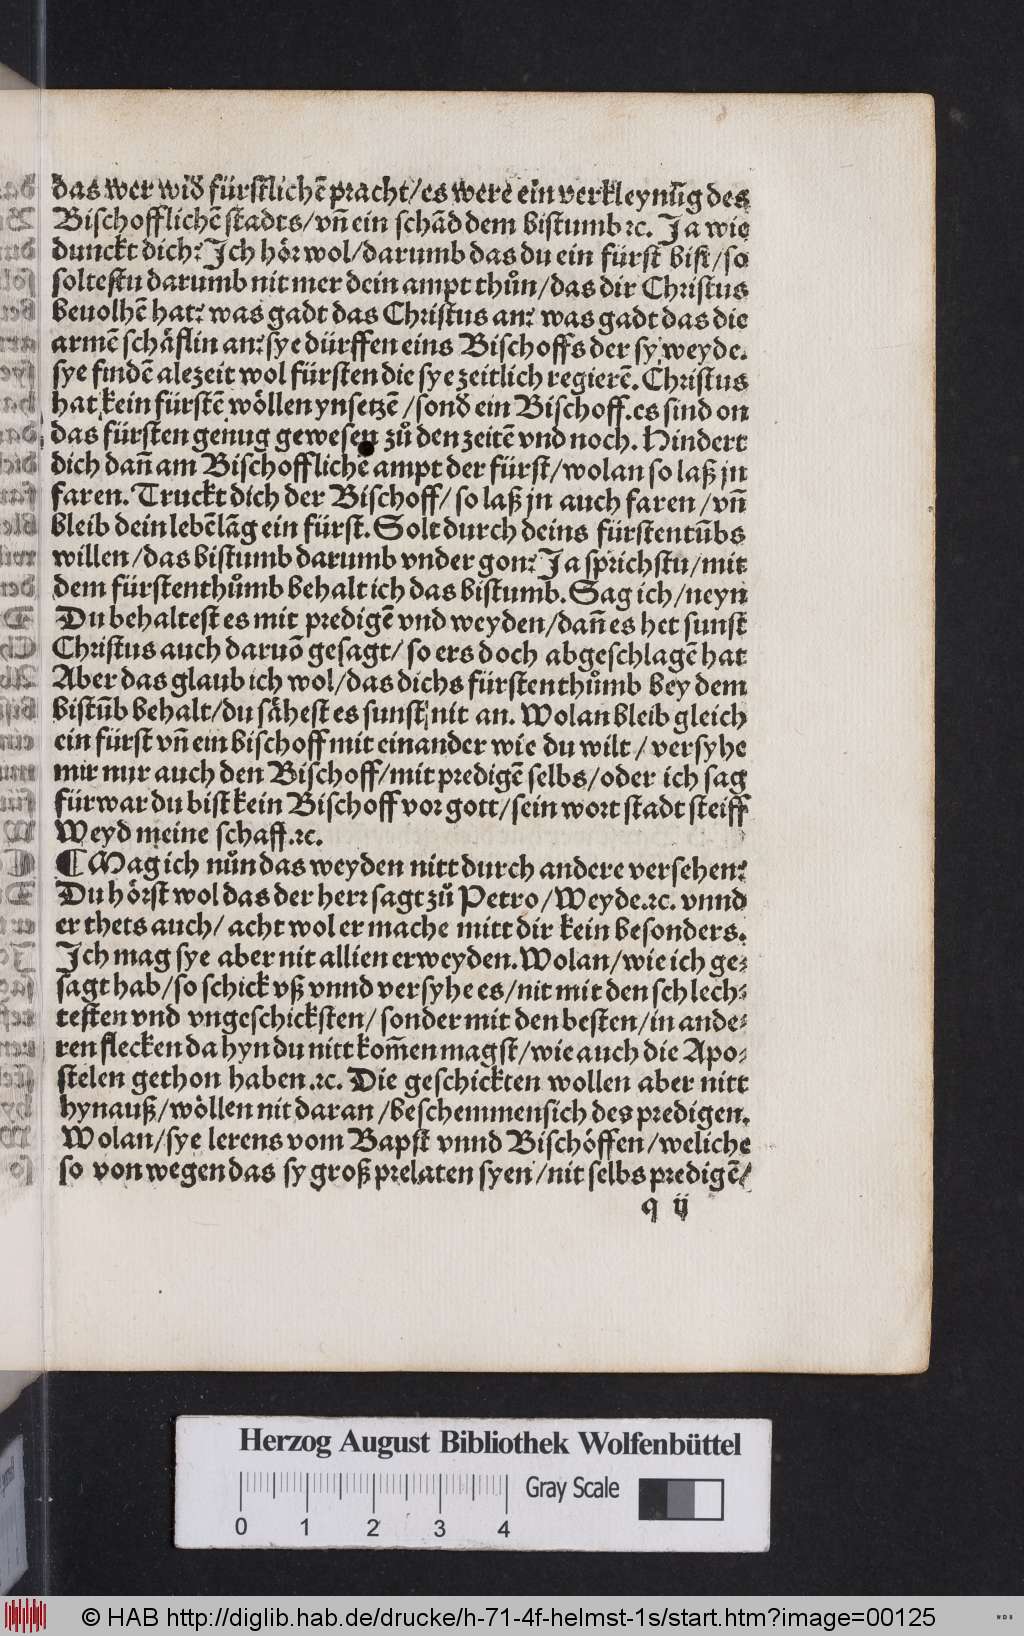 das wer wid̕ fürstlichē pracht/es were ein verkleynūg des
Bischofflichē stadts/vn̄ ein schād dem bistumb ꝛc. Ja wie
dunckt dich? Ich hör wol/darumb das du ein fürst bist/so
soltestu darumb nit mer dein ampt thůn/das dir Christus
beuolhē hat? was gadt das Christus an? was gadt das die
armē schäflin an? sye dürffen eins Bischoffs der sy weyde.
sye findē alezeit wol fürsten die sye zeitlich regierē. Christus
hat kein fürstē wöllen ynsetzē/sond̕ ein Bischoff. es sind on
das fürsten genug gewesen zů den zeitē vnd noch. Hindert
dich dan̄ am Bischofflichē ampt der fürst/wolan so laß jn
faren. Truckt dich der Bischoff/ so laß jn auch faren/vn̄
bleib dein lebēlāg ein fürst. Solt durch deins fürstentūbs
willen/das bistumb darumb vnder gon? Ja sprichstu/mit
dem fürstenthůmb behalt ich das bistumb. Sag ich/neyn
Du behaltest es mit predigē vnd weyden/dan̄ es het sunst
Christus auch daruō gesagt/ so ers doch abgeschlagē hat
Aber das glaub ich wol/das dichs fürstenthůmb bey dem
bistūb behalt/du sähest es sunst nit an. Wolan bleib gleich
ein fürst vn̄ ein bischoff mit einander wie du wilt/versyhe
mir nur auch den Bischoff/mit predigē selbs/oder ich sag
fürwar du bist kein Bischoff vor gott/sein wort stadt steiff
Weyd meine schaff.ꝛc.
¶ Mag ich nůn das weyden nitt durch andere versehen?
Du hörst wol das der herr sagt zů Petro/Weyde.ꝛc. vnnd
er thets auch/ acht wol er mache mitt dir kein besonders.
Ich mag sye aber nit allien erweyden. Wolan/wie ich ge⸗
sagt hab/so schick vß vnnd versyhe es/nit mit den schlech⸗
testen vnd vngeschicksten/ sonder mit den besten/in ande⸗
ren flecken da hyn du nitt kom̄en magst/wie auch die Apo⸗
stelen gethon haben.ꝛc. Die geschickten wollen aber nitt
hynauß/wöllen nit daran/beschemmen sich des predigen.
Wolan/sye lerens vom Bapst vnnd Bischöffen/weliche
so von wegen das sy groß prelaten syen/nit selbs predigē/
q ij
Herzog August Bibliothek Wolfenbüttel
0 1 2 3 4 Gray Scale
© HAB http://diglib.hab.de/drucke/h-71-4f-helmst-1s/start.htm?image=00125